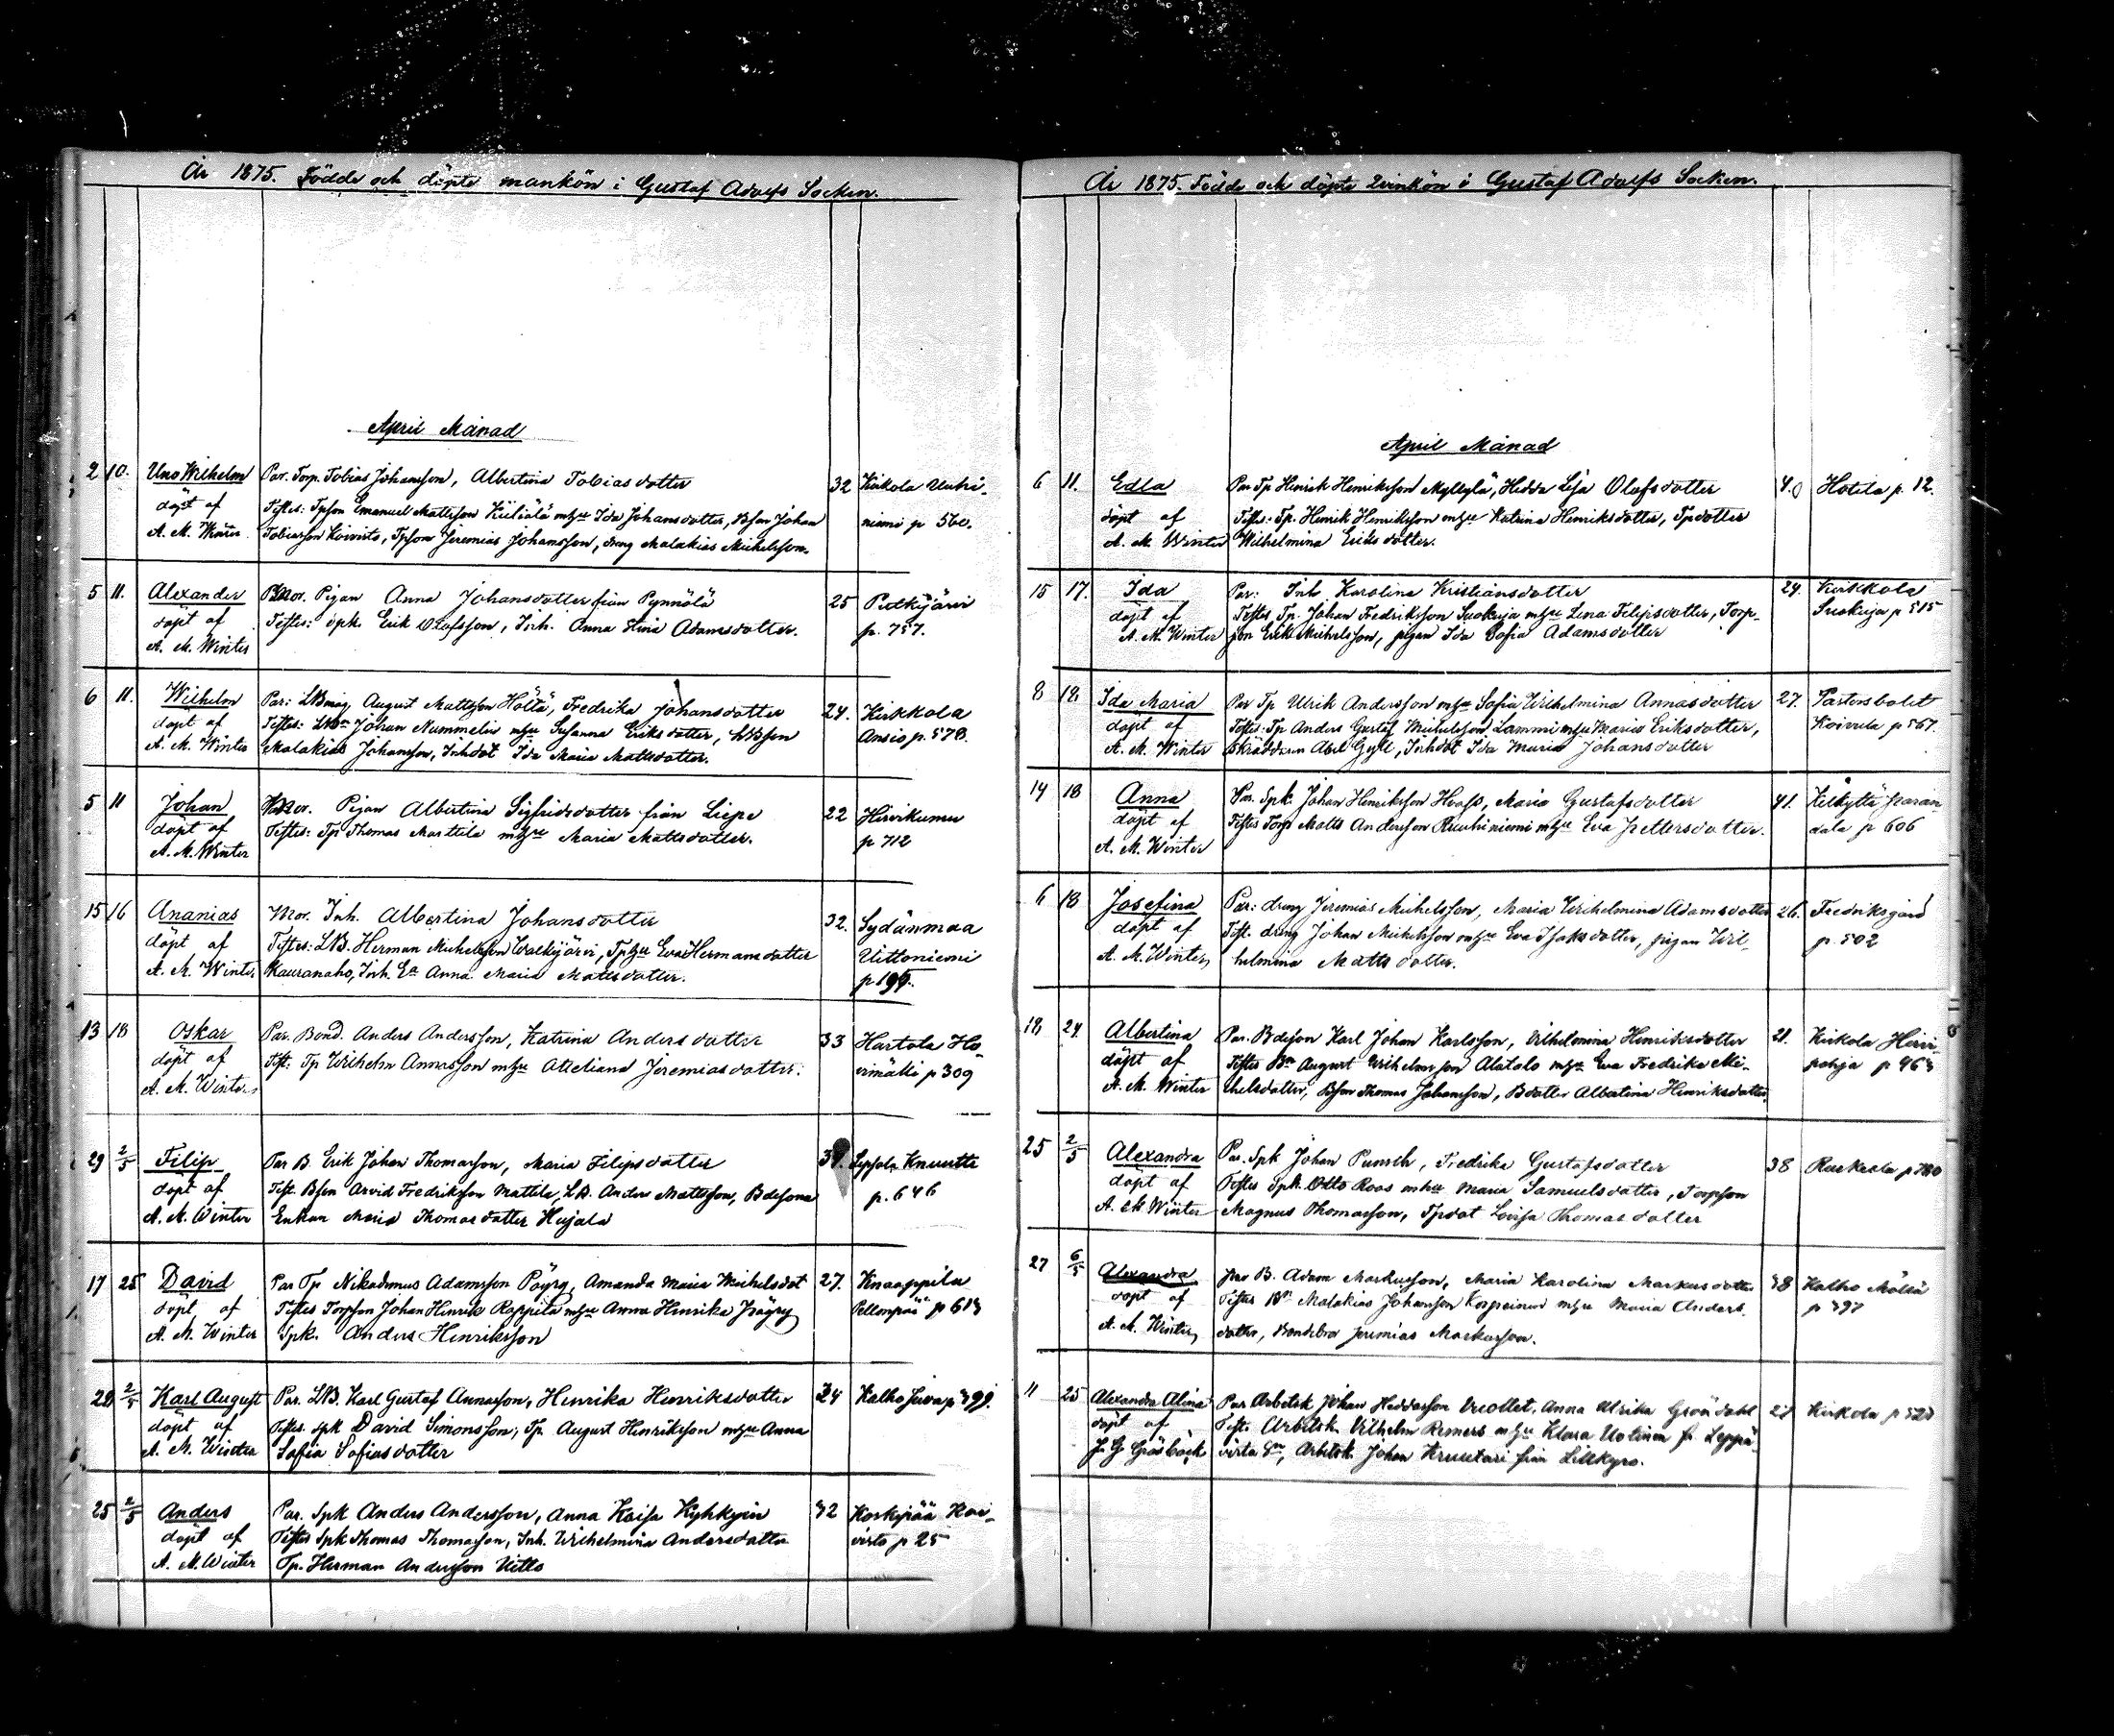 År 1875. Födde och döpte mankön i Gustaf Adolfs Socken.
April Månad
2 10. Uno Wilhelm Par. Torp. Tobias Johansson, Albertina Tobiasdotter 32 Kirkola Uuhi-
döpt af Testes: Tpson Emanuel Mattsson Kiiliälä mhu Ida Johansdotter, Bson Johan niemi p 560.
A. M. Winter Tobiasson Koivisto, Tpson Jeremias Johansson, dreng Malakias Michelsson.
5 11. Alexander Mor. Pigan Anna Johansdotter från Pynnölä 25 Putkijärvi
döpt af Testes: spk. Erik Olofsson, Inh. Anna Stina Adamsdotter. p. 757.
A. M. Winter
6 11. Wilhelm Par: LBmåg August Mattsson Höltä, Fredrika Johansdotter 24. Kirkkola
döpt af Testes: Johan Nummelin mhu Susanna Eriksdotter, LBson Ansio p. 578.
A. M. Winter Malakias Johansson, Inhdot Ida Maria Mattsdotter.
5 11 Johan Mor. Pigan Albertina Sigfridsdotter från Liepe 22 Hirvikumu
döpt af Testes: Tp Thomas Marttila mhu Maria Mattsdotter. p 712
A. M. Winter
15 16 Ananias Mor. Inh. Albertina Johansdotter 32. Sydänmaa
döpt af Testes: LB. Herman Michelsson Walkijärvi, Tphu Eva Hermansdotter Uittoniemi
A. M. Winter Kauranaho, Inh. Ea Anna Maria Mattsdotter. p 199.
13 18 Oskar Par. Bond. Anders Andersson, Katrina Andersdotter 33 Hartola Ho-
döpt af Test: Tp Wilhelm Annasson mhu Atteliana Jeremiasdotter. vimäki p 309
A. M. Winter
29 2/5 Filip Par B. Erik Johan Thomasson, Maria Filipsdotter Lepsola Knuutti
döpt af Test. Bson Arvid Fredriksson Mattila, LB. Anders Mattsson, Bdesons p. 646
A. M. Winter Enkan Maria Thomasdotter Hujala
17 25 David Par Tp Nikodemus Adamsson Pöyry, Amanda Maria Michelsdot 27. Knaappila
döpt af Testes Torpson Johan Henrik Rappila mhu Anna Henrika Pöyry Pellonpää p 613
A. M. Winter Spk. Anders Henriksson
28 2/5 Karl August Par. LB. Karl Gustaf Annasson, Henrika Henriksdotter 24 Kalho Juva p 399.
döpt af Testes. spk David Simonsson, Tp. August Henriksson mhu Anna
A. M. Winter Sofia Sofiasdotter
25 2/5 Anders Par. Spk Anders Andersson, Anna Kaisa Kyhkyin 32 Koskipää Koi-
döpt af Testes Spk Thomas Thomasson, Inh. Wilhelmina Andersdotter visto p 25
A. M. Winter Tp. Herman Andersson Uitto
År 1875. Födde och döpte Qvinkön i Gustaf Adolfs Socken.
April Månad
6 11. Edla Par Tp Henrik Henriksson Myllylä, Hedda Lisa Olofsdotter 40 Hotila p. 12.
döpt af Testes: Tp. Henrik Henriksson mhu Katrina Henriksdotter, Tpdotter
A. M. Winter Wilhelmina Eriksdotter.
15 17. Ida Par: Inh Karolina Kristiansdotter 24. Kirkkola
döpt af Testes Tp. Johan Fredriksson Suokuja mhu Lena Filipsdotter, Torp- Suokuja p 515
A. M. Winter son Erik Michelsson, pigan Ida Sofia Adamsdotter
8 18 Ida Maria Par Tp Ulrik Andersson mhu Sofia Wilhelmina Annasdotter 27. Pastorsbolet
döpt af Testes: Tp Anders Gustaf Michelsson Lammi mhu Maria Eriksdotter, Koivula p 567.
A. M. Winter Skräddaren Abel Gyll, Inhdot Ida Maria Johansdotter
14 18 Anna Par. Spk. Johan Henriksson Hoass, Maria Gustafsdotter 41. Kilkyttä
döpt af Testes Torp Matts Andersson Ruuhiniemi mhu Eva Pettersdotter. dala p 606
A. M. Winter
6 18 Josefina Par: dreng Jeremias Michelsson, Maria Wilhelmina Adamsdotter 26. Fredriksgård
döpt af Test. dreng Johan Mickelsson mhu Eva Isaksdotter, pigan Wil- p. 502
A. M. Winter helmina Mattsdotter.
18 24 Albertina Par. Bdeson Karl Johan Karlsson, Wilhelmina Henriksdotter 21. Kirkola Hirvi-
döpt af Testes Bn August Wilhelmsson Alatalo mhu Eva Fredrika Mi- pohja p 463
A. M. Winter chelsdotter, Bson Thomas Johansson, Bdotter Albertina Henriksdotter
25 2/5 Alexandra Par. Spk Johan Fredrika Gustafsdotter 38 Ruskeala
döpt af Testes Spk. Otto Roos mhu Maria Samuelsdotter, Torpson
A. M. Winter Magnus Thomasson, Tpdot Lovisa Thomasdotter
27 6/5 Alexandra Par B. Adam Markusson, Maria Karolina Markusdotter 38 Kalho Mölsä
döpt af Testes Bn Malakias Johansson mhu Maria Anders- p 397
A. M. Winter dotter, Bondebror Jeremias Markusson.
11 25 Alexandra Alina Par Arbetsk Johan Heddasson Anna Ulrika Gröndahl Kirkola p 520
döpt af Test. Arbetsk. Vilhelm mhu Klara Uotinen fr. Leppä-
J G Gråsbäck virta Sn, Arbetsk. Johan från Lillkyro.